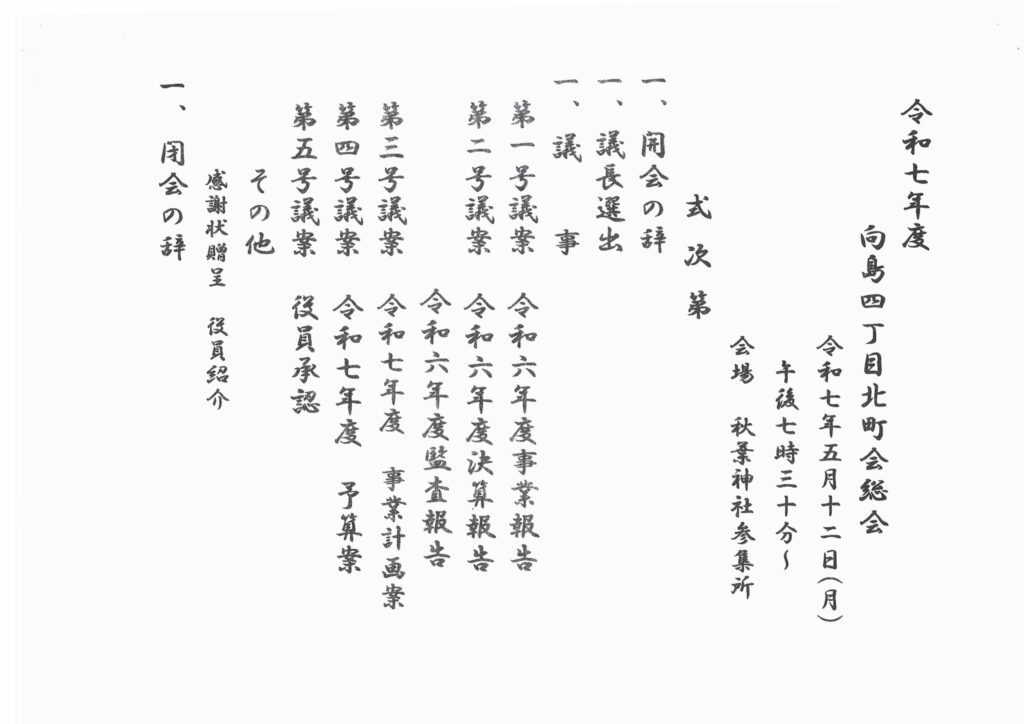 令和七年度
向島四丁目北町会総会
令和七年五月十二日(月)
午後七時三十分~
会場 秋葉神社参集所
式次第
一、開会の辞
一、議長選出
一、議 事
第一号議案 令和六年度事業報告
第二号議案 令和六年度決算報告
令和六年度監査報告
第三号議案 令和七年度 事業計画案
第四号議案 令和七年度 予算案
第五号議案 役員承認
その他
感謝状贈呈 役員紹介
一、閉会の辞